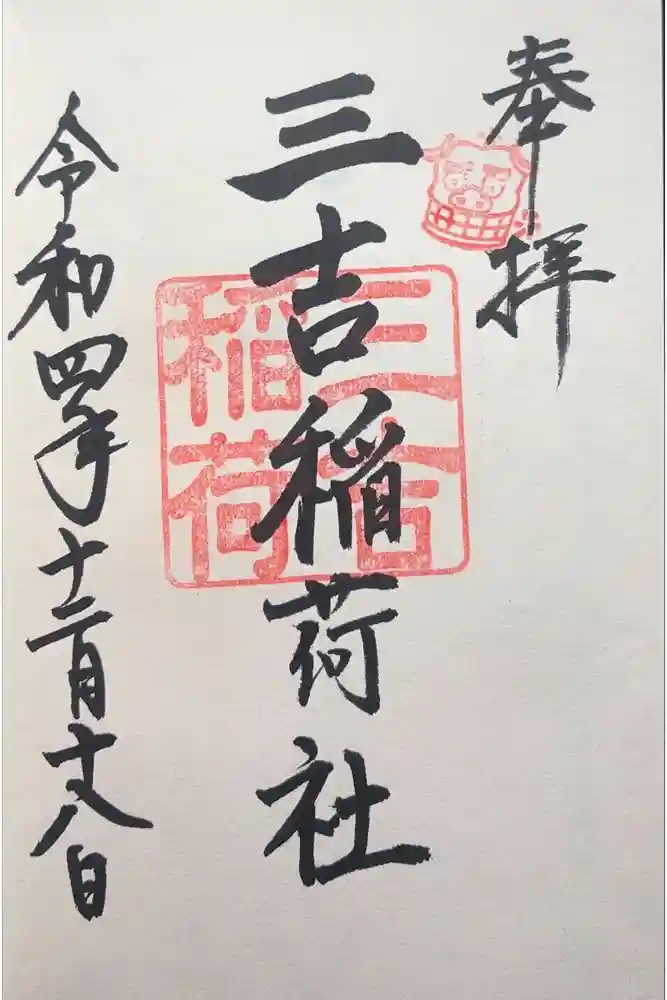 奉拝
三吉稲荷社
三吉
稲荷
令和四年十二月十八日